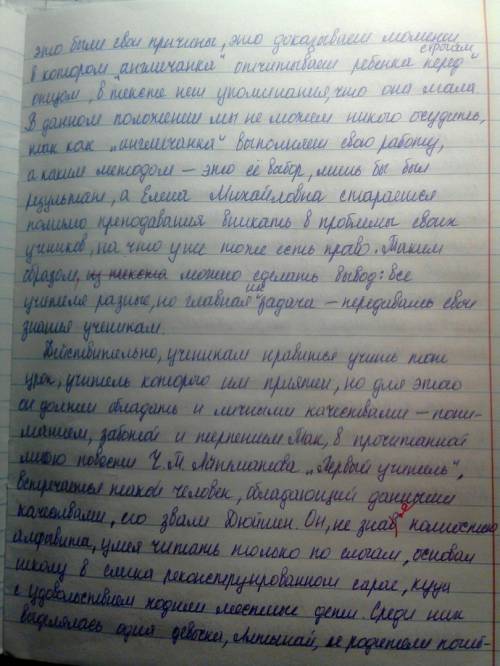 это были свои причины, это доказывает момент
в котором "англичанка" отчитывает ребёнка перед строгим
отцом, в тексте нет упоминания, что она мала.
В данном положении мы не можем никого осудить,
так как „англичанка" выполняет свою работу,
а каким методом – это её выбор, лишь бы был
результат, а Елена Михайловна старается
помимо преподавания вникать в проблемы своих
учеников, на что у неё тоже есть право. Таким
образом, из текста можно сделать вывод: все
учителя разные, но главная их задача – передавать свои
знания ученикам.
Действительно, ученикам нравится учить тот
урок, учитель которого им приятен, но для этого
он должен обладать и личными качествами – пони-
манием, заботой и терпением. Так, в прочитанной
мною повести Ч.Т. Айтматова „Первый учитель",
встречается такой человек, обладающий данными
качествами, его звали Дюйшен. Он, не зная полностью
алфавита, умея читать только по слогам, основал
школу в слегка реконструированном сарае, куда
с удовольствием ходили местные дети. Среди них
выделялась одна девочка, Алтынай, её родители погиб-